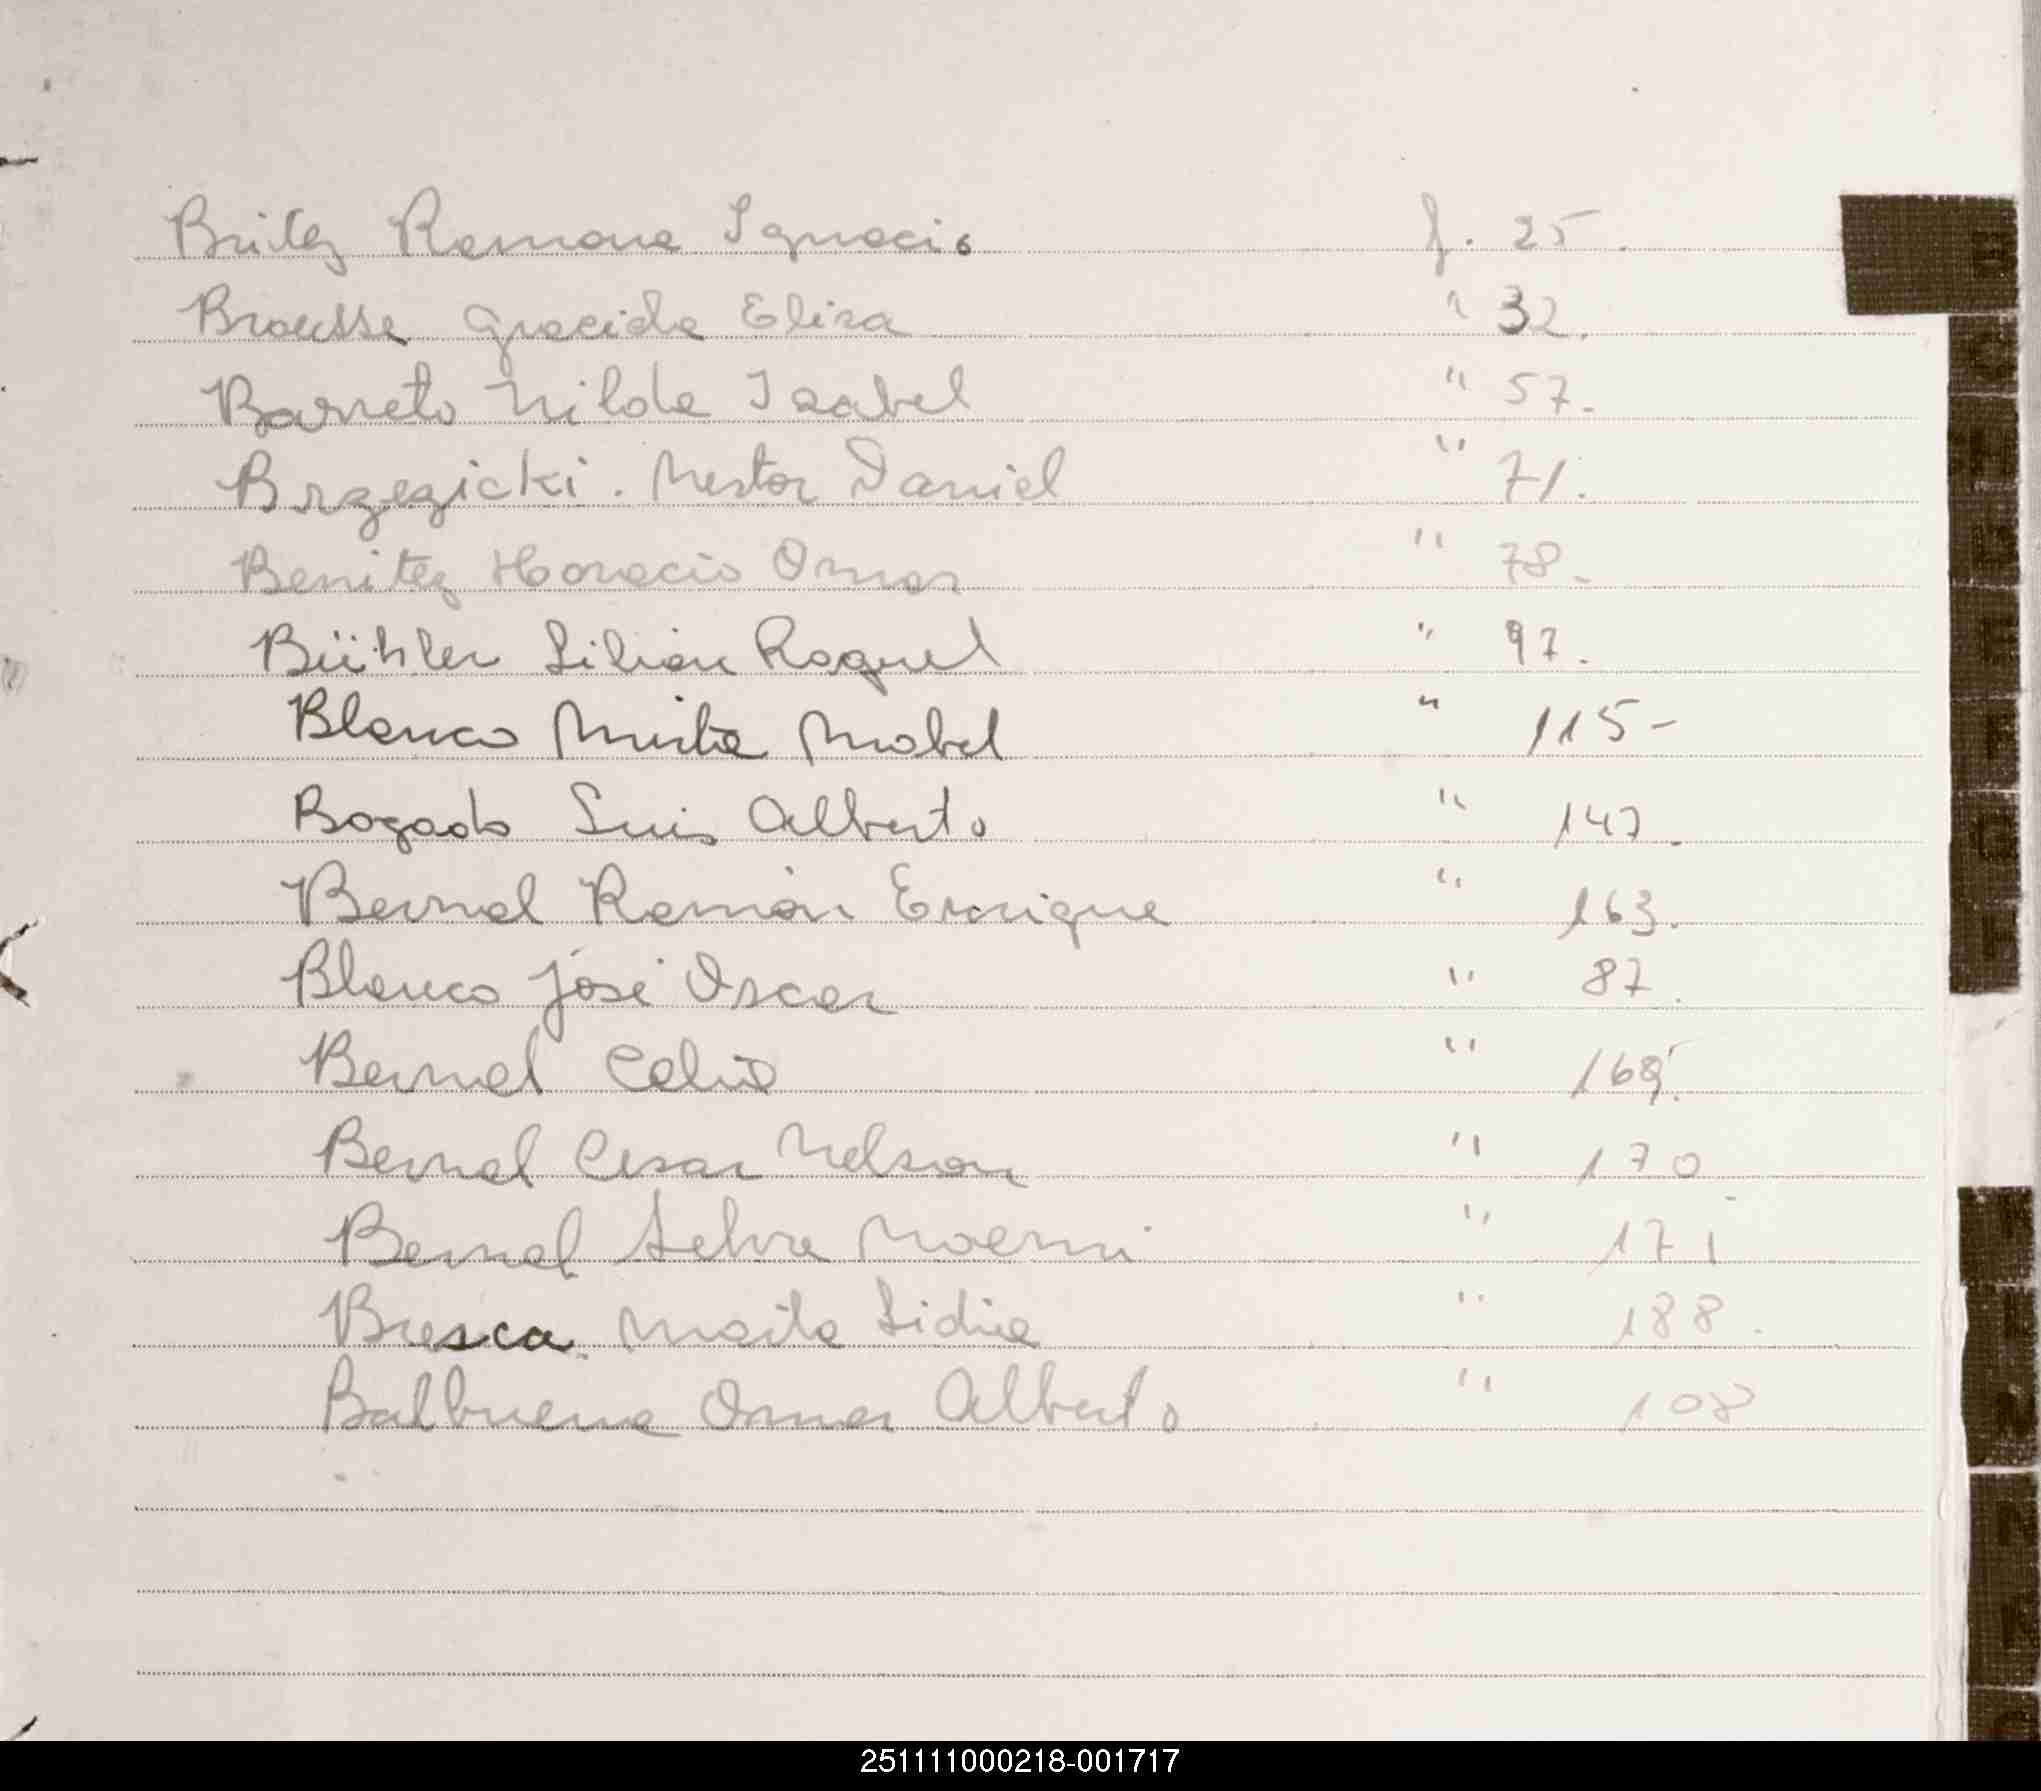 Britez Ramona Ignacio f. 25.
Brousse Gracida Elisa " 32.
Barreto Nilda Isabel " 57.-
Brzezicki. Nestor Daniel " 71.
Benitez Horacio Omar " 78.-
Bühler Lilian Raquel " 97.
Blanco Mirta Mabel " 115-
Bogado Luis Alberto " 147.
Bernal Ramón Enrique " 163.
Blanco José Oscar " 87.
Bernal Celia "
Bernal Cesar Nelson " 170
Bernal Selva Noemi " 171
Bresca Lidia " 188.
Balbuena Omar Alberto " 108
B
C
251111000218-001717